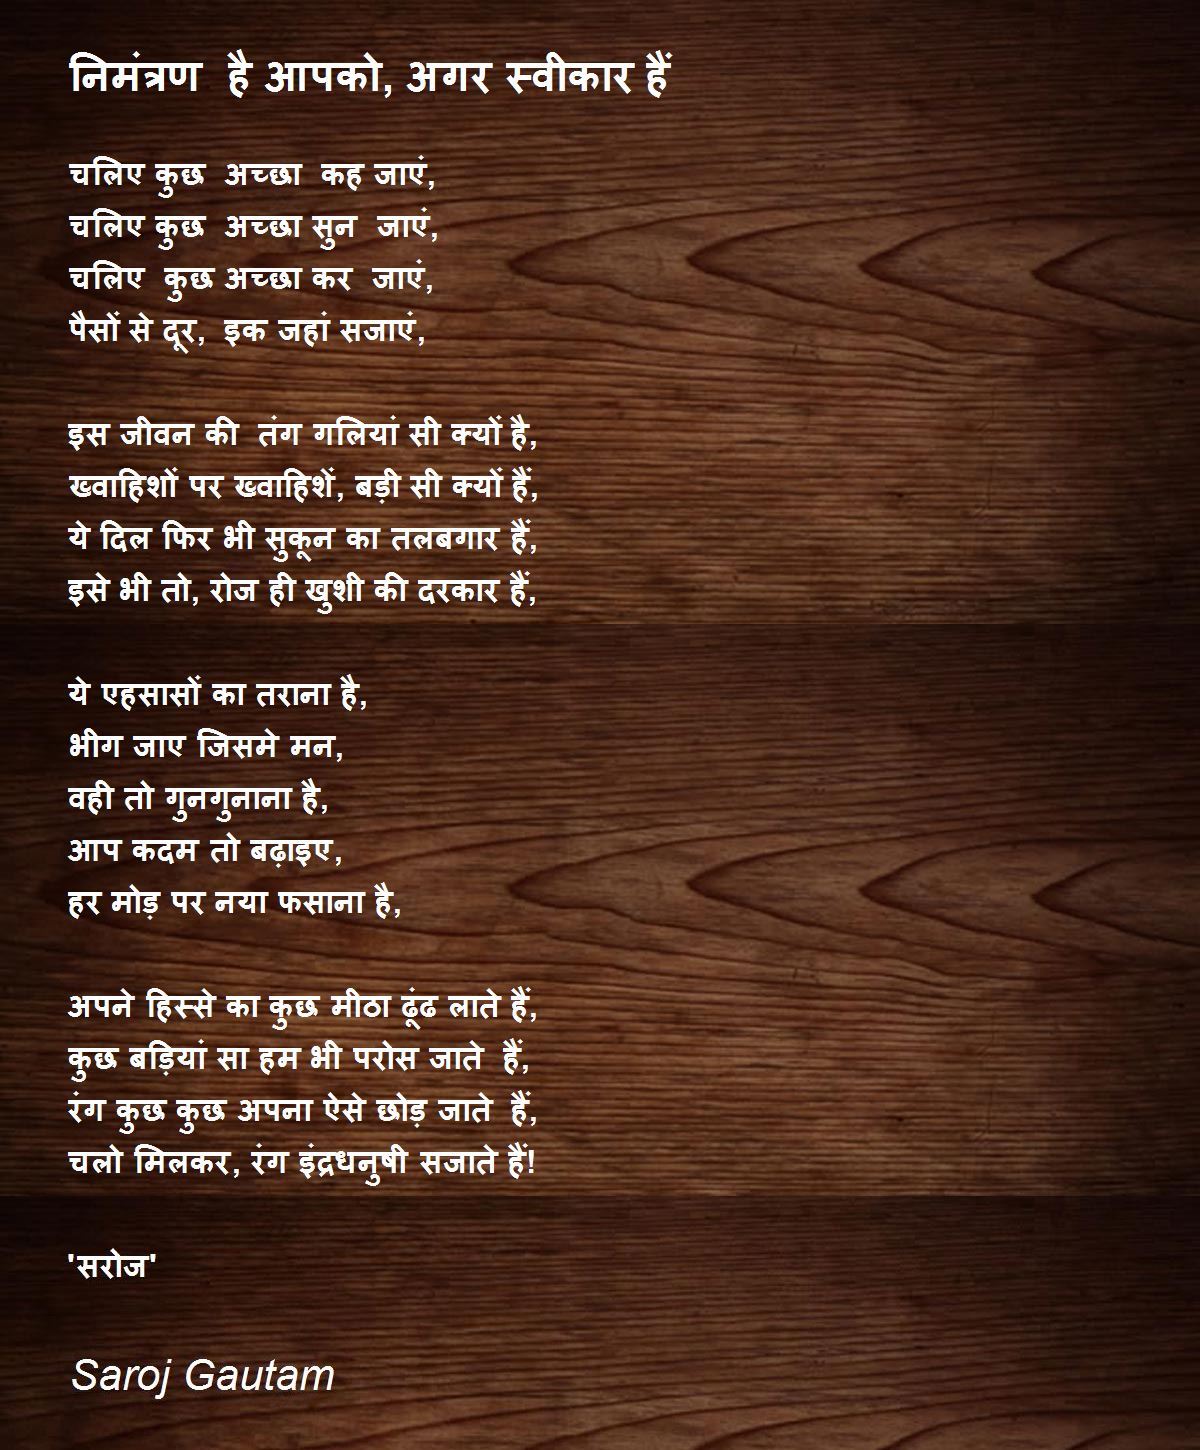 निमंत्रण है आपको, अगर स्वीकार हैं
चलिए कुछ अच्छा कह जाएं,
चलिए कुछ अच्छा सुन जाएं,
चलिए कुछ अच्छा कर जाएं,
पैसों से दूर, इक जहां सजाएं,
इस जीवन की तंग गलियां सी क्यों है,
ख्वाहिशों पर ख्वाहिशें, बड़ी सी क्यों हैं,
ये दिल फिर भी सुकून का तलबगार हैं,
इसे भी तो, रोज ही खुशी की दरकार हैं,
ये एहसासों का तराना है,
भीग जाए जिसमे मन,
वही तो गुनगुनाना है,
आप कदम तो बढ़ाइए,
हर मोड़ पर नया फसाना है,
अपने हिस्से का कुछ मीठा ढूंढ लाते हैं,
कुछ बड़ियां सा हम भी परोस जाते हैं,
रंग कुछ कुछ अपना ऐसे छोड़ जाते हैं,
चलो मिलकर, रंग इंद्रधनुषी सजाते हैं!
'सरोज'
Saroj Gautam